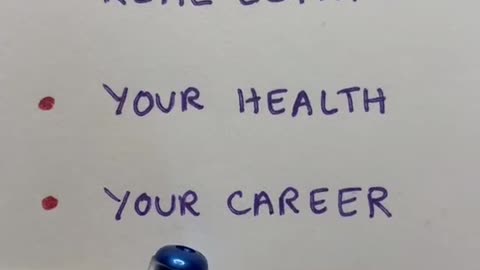 YOUR HEALTH
YOUR CAREER